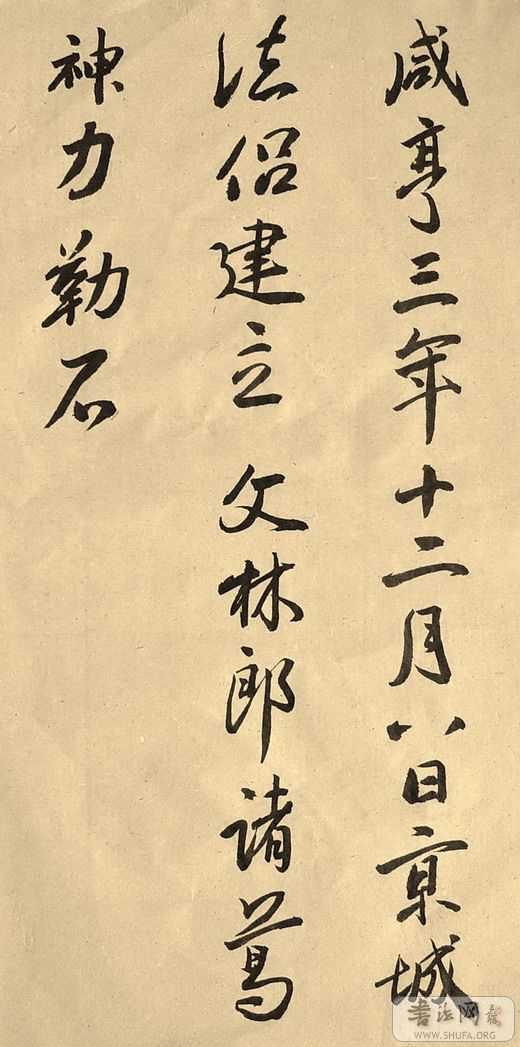 咸亨三年十二月八日京城
法侣建立 文林郎诸葛
神力勒石
书法网
WWW.SHUFA.ORG